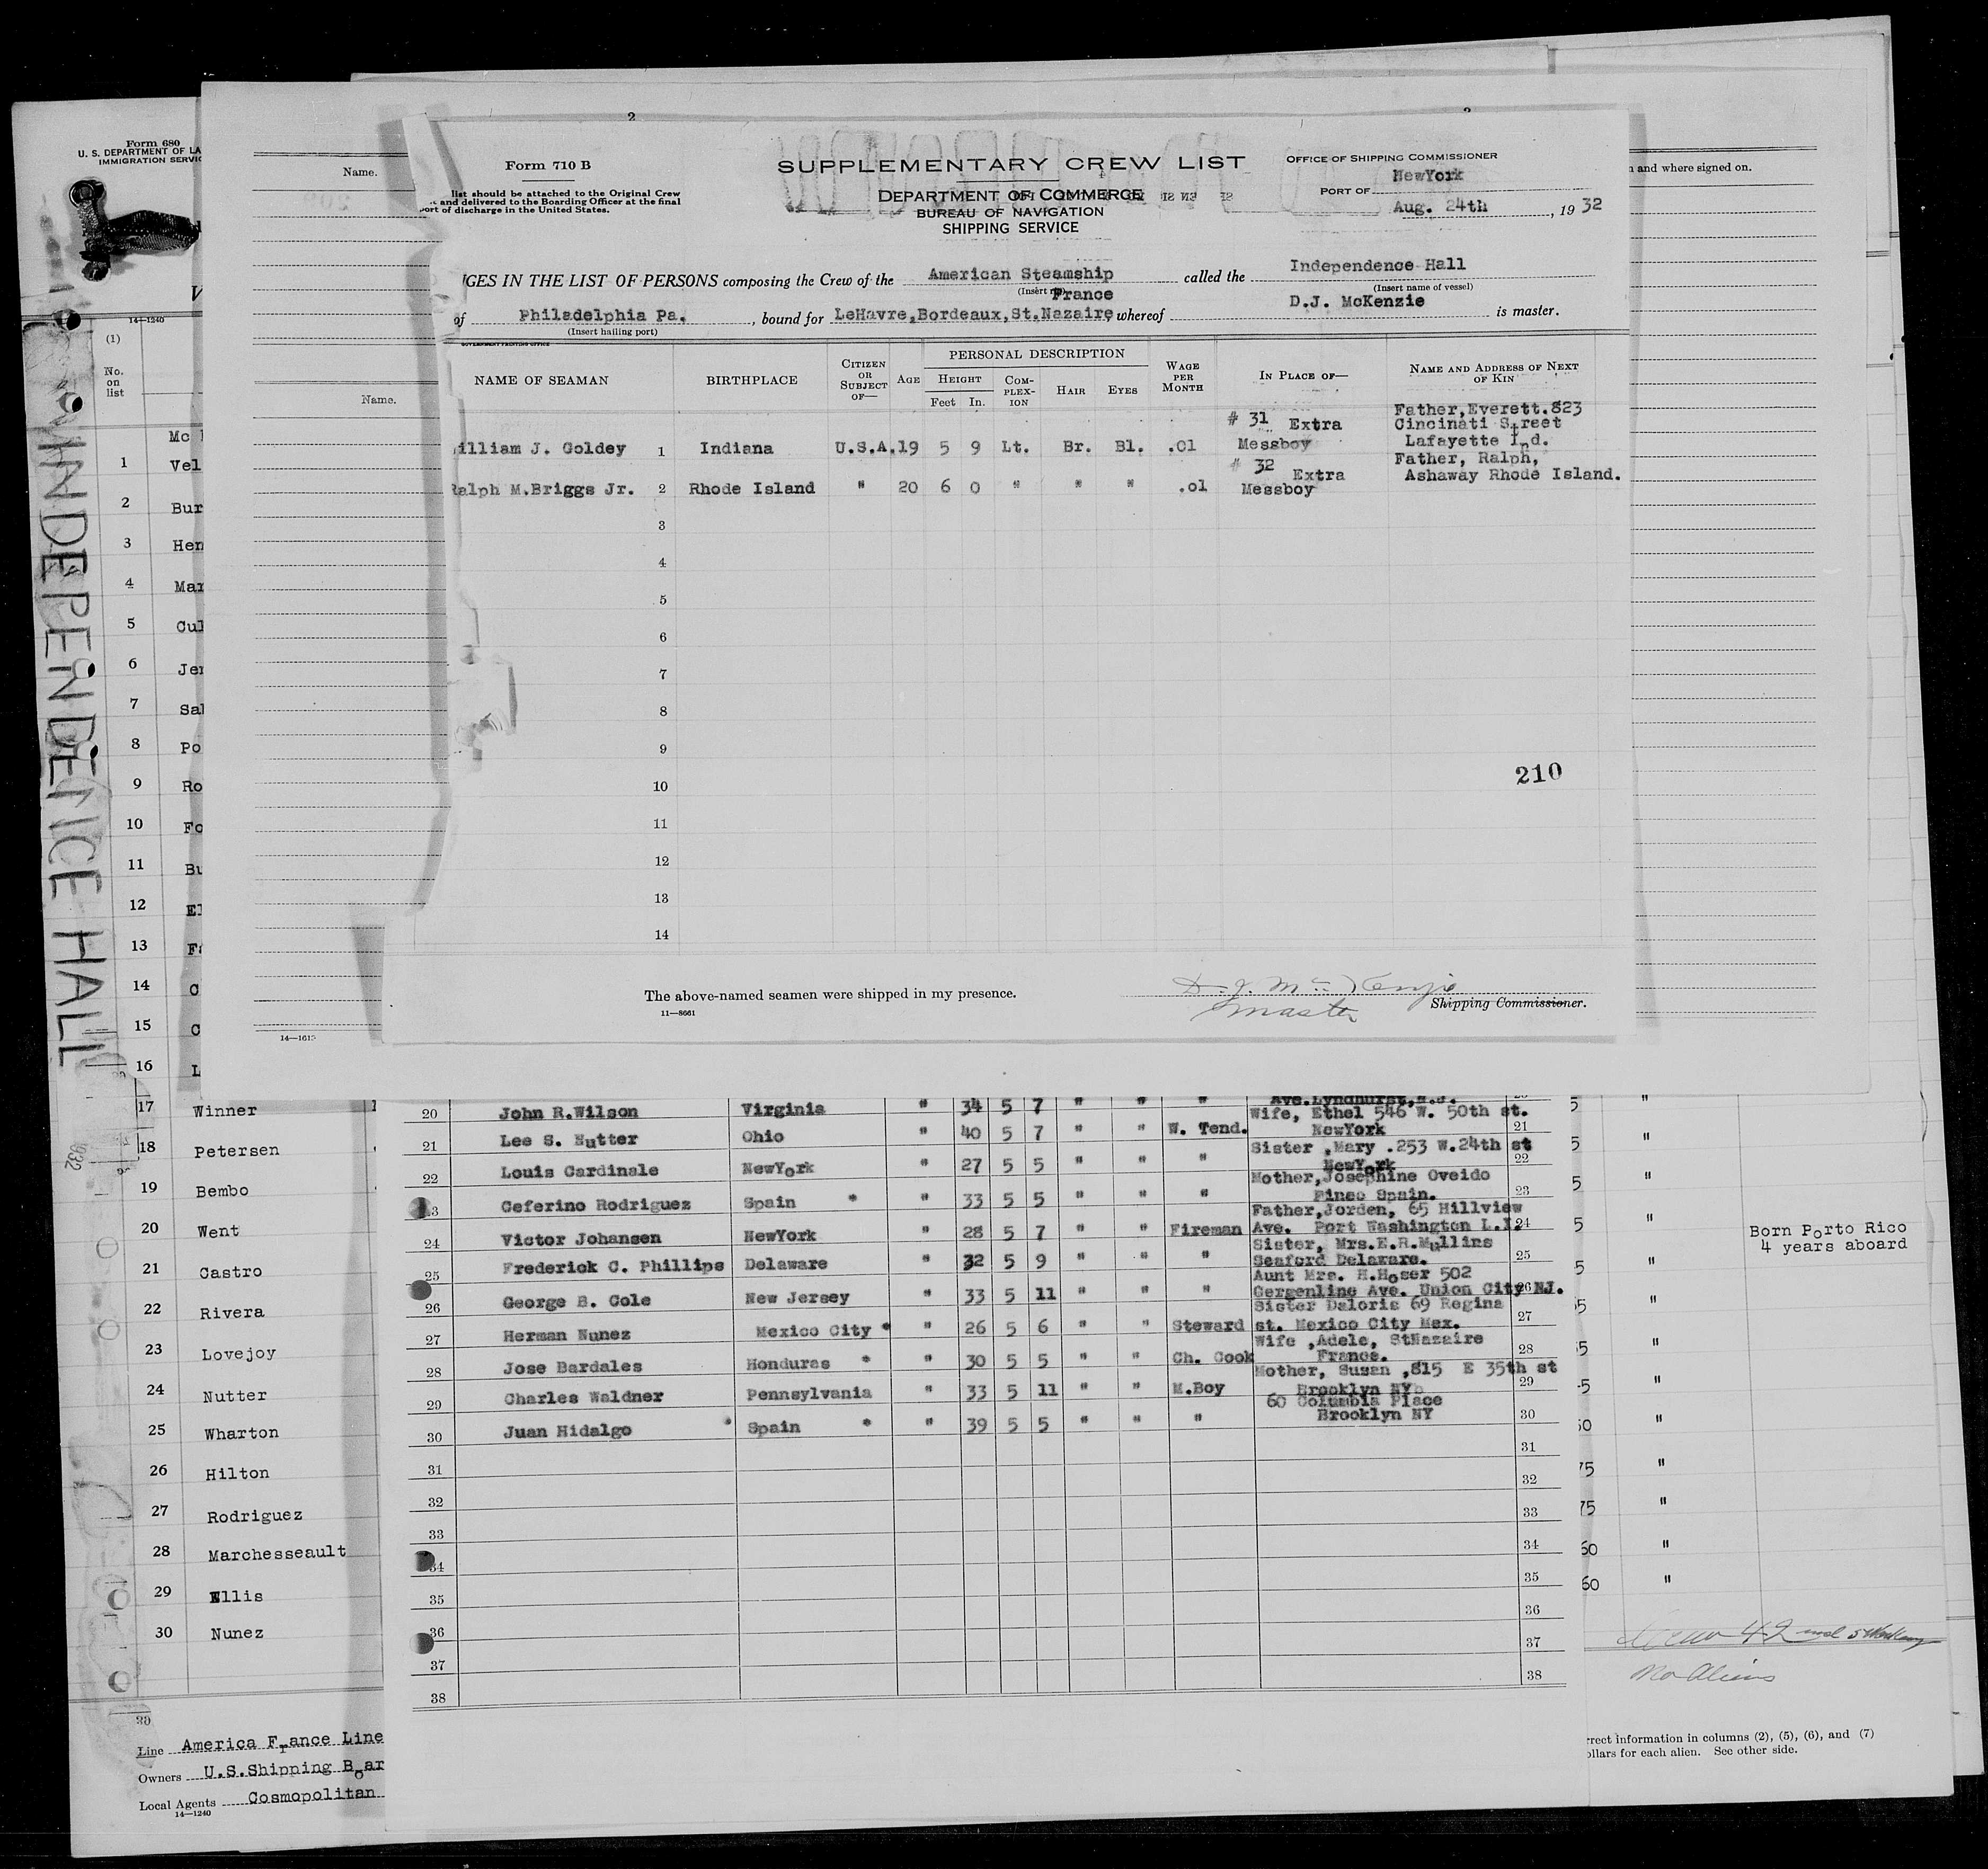 Form 680
U. S. DEPARTMENT OF LA
IMMIGRATION SERVIC
14—1240
(1)
No.
on
list
INDEPENDENCE HALL
Name.
Name.
14—1613
n and where signed on.
2
Form 710 B
list should be attached to the Original Crew
and delivered to the Boarding Officer at the final
port of discharge in the United States.
SUPPLEMENTARY CREW LIST
DEPARTMENT OF COMMERCE
BUREAU OF NAVIGATION
SHIPPING SERVICE
OFFICE OF SHIPPING COMMISSIONER
PORT OF NewYork
Aug. 24th, 1932
GES IN THE LIST OF PERSONS composing the Crew of the American Steamship called the Independence Hall
(Insert name of vessel)
of Philadelphia Pa., bound for LeHavre,Bordeaux,St.Nazaire France whereof D.J. McKenzie is master.
(Insert hailing port)
GOVERNMENT PRINTING OFFICE
NAME OF SEAMAN BIRTHPLACE CITIZEN OR SUBJECT OF— AGE PERSONAL DESCRIPTION WAGE PER MONTH IN PLACE OF— NAME AND ADDRESS OF NEXT OF KIN
HEIGHT COMPLEXION HAIR EYES
Feet In.
illiam J. Goldey 1 Indiana U.S.A. 19 5 9 Lt. Br. Bl. .01 # 31 Extra Messboy Father,Everett.823 Cincinati Street Lafayette Ind.
Ralph M.Briggs Jr. 2 Rhode Island " 20 6 0 " " " .01 # 32 Extra Messboy Father, Ralph, Ashaway Rhode Island.
3
4
5
6
7
8
9
10
11
12
13
14
210
The above-named seamen were shipped in my presence.
11—8661
D. J. McKenzie
Master
Shipping Commissioner.
Mc
1 Vel
2 Bur
3 Hen
4 Mar
5 Cul
6 Jen
7 Sal
8 Po
9 Ro
10 Fo
11 Bu
12 El
13 Fa
14 C
15 C
16 L
17 Winner
18 Petersen
19 Bembo
20 Went
21 Castro
22 Rivera
23 Lovejoy
24 Nutter
25 Wharton
26 Hilton
27 Rodriguez
28 Marchesseault
29 Ellis
30 Nunez
30
Line America France Line
Owners U.S.Shipping Boar
Local Agents Cosmopolitan
14—1240
932
Ave.Lyndhurst,N.J.
20 John R.Wilson Virginia " 34 5 7 " " " Wife, Ethel 546 W. 50th st. NewYork
21 Lee S. Nutter Ohio " 40 5 7 " " W. Tend. Sister ,Mary .253 W.24th st NewYork 21
22 Louis Cardinale NewYork " 27 5 5 " " " Mother,Josephine Oveido Pineo Spain. 22
23 Ceferino Rodriguez Spain * " 33 5 5 " " " Father,Jorden, 65 Hillview Ave. Port Washington L.I. 23
24 Victor Johansen NewYork " 28 5 7 " " Fireman Sister, Mrs.E.R.Mullins Seaford Delaware. 24
25 Frederick C. Phillips Delaware " 32 5 9 " " " Aunt Mrs. H.Hoser 502 Gergenline Ave. Union City NJ. 25
26 George B. Cole New Jersey " 33 5 11 " " " Sister Daloris 69 Regina st. Mexico City Mex. 26
27 Herman Nunez Mexico City * " 26 5 6 " " Steward Wife ,Adele, StNazaire France. 27
28 Jose Bardales Honduras * " 30 5 5 " " Ch. Cook Mother, Susan ,815 E 35th st Brooklyn NY 28
29 Charles Waldner Pennsylvania " 33 5 11 " " M.Boy 60 Columbia Place Brooklyn NY 29
30 Juan Hidalgo * Spain * " 39 5 5 " " " 30
31 31
32 32
33 33
34 34
35 35
36 36
37 37
38 38
Born Porto Rico
4 years aboard
Crew 42 incl 5 Workaway
No Aliens
rrect information in columns (2), (5), (6), and (7)
ollars for each alien. See other side.